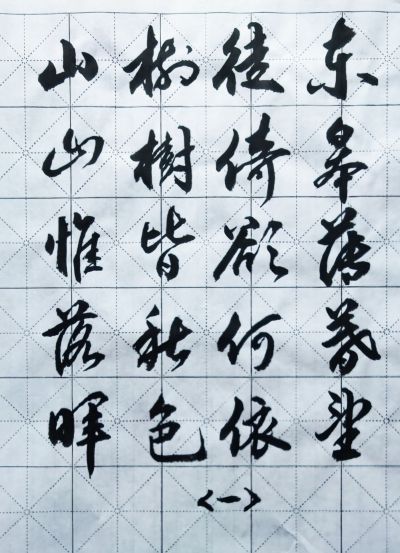 东皋薄暮望
徙倚欲何依
树樹皆秋色
山山惟落暉
<一>